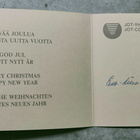 VÄÄ JOULUA
STA UUTTA VUOTTA
GOD JUL
TT NYTT ÅR
Y CHRISTMAS
PY NEW YEAR
HE WEIHNACHTEN
TES NEUES JAHR
JOT-
JOT-CO